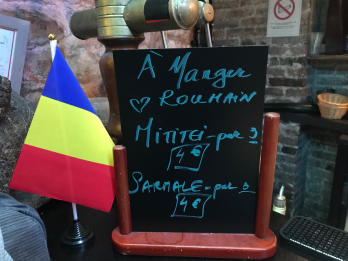 À Manger
♡ ROUMAIN
MITITEI - par 3
4 €
SARMALE - par 3
4 €